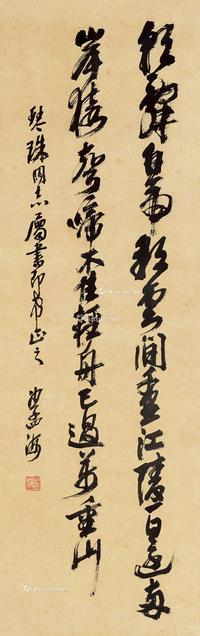 朝辭白帝彩雲間千里江陵一日還兩
岸猿聲啼不住輕舟已過萬重山
珠同志屬書即正之 沙孟海